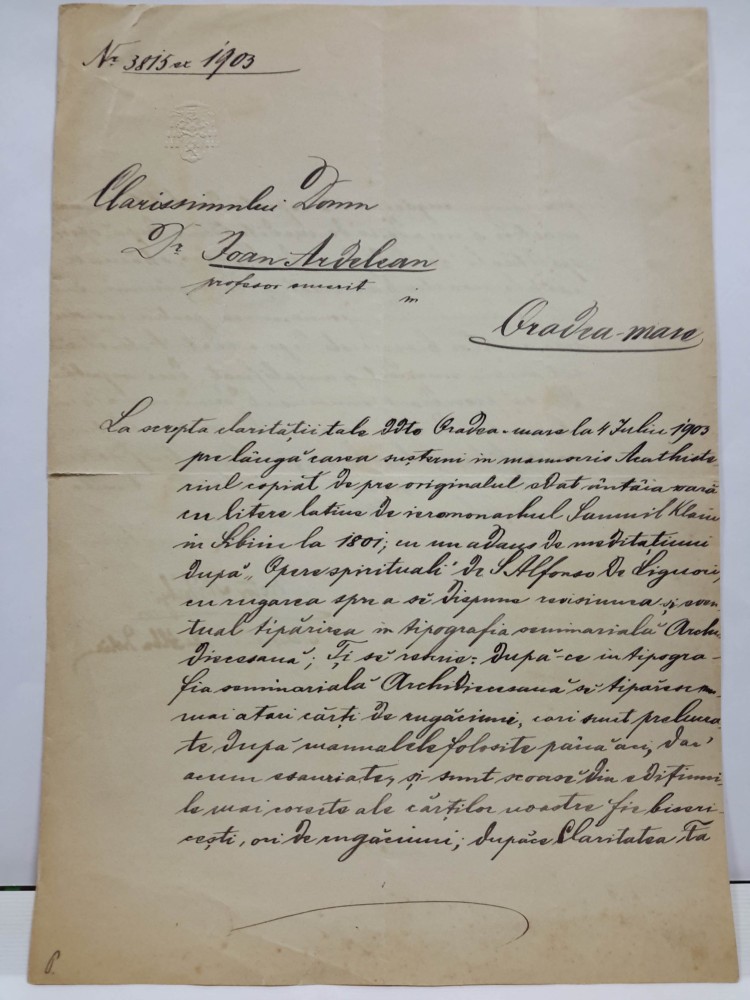 Nr 3815 ex 1903
Clarissimului Domn
Dr Ioan Ardelean
profesor emerit
in
Oradea-mare
La scripta clarității tale ddto Oradea-mare la 4 Iuliu 1903
pre lângă carea susterni in manuscris Acathiste-
riul copiat de pre originalul edat ântâia oară
cu litere latine de ieromonachul Samuil Klain
in Sibiiu la 1801; cu un adaus de meditațiuni
după „Opere spirituali" de S. Alfonso de Liguori,
cu rugarea spre a se dispune revisiunea și even-
tual tipărirea in tipografia seminarială Archi-
diecesană; Ți se rescrie: după-ce in tipogra-
fia seminarială Archidiecesană se tipăresc nu-
mai atari cărți de rugăciuni, cari sunt prelucra-
te după manualele folosite până aci, dar'
acum esauriate, și sunt scoase din edițiuni-
le mai corecte ale cărților noastre fie biseri-
cești, ori de rugăciuni; dupăce Claritatea Ta
6.